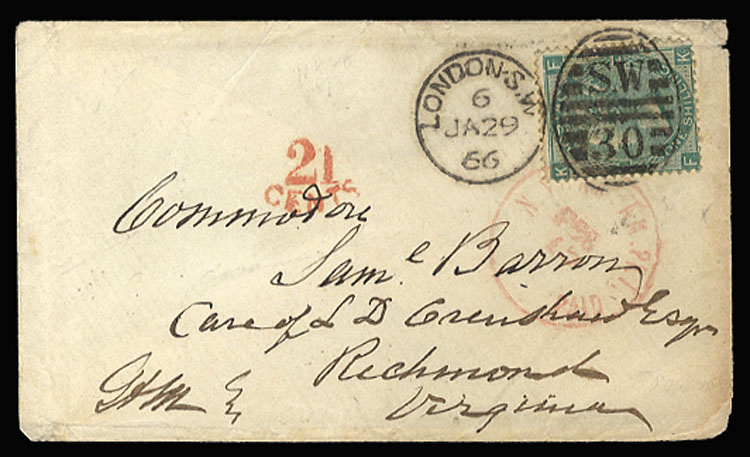 LONDON·S.W
6
JA 29
66
SW
30
F K
ONE SHILLING
K F
21
CENTS
PAID
Commodore
Saml Barron
Care of L D Crenshaw Esqr
Richmond
Virginia